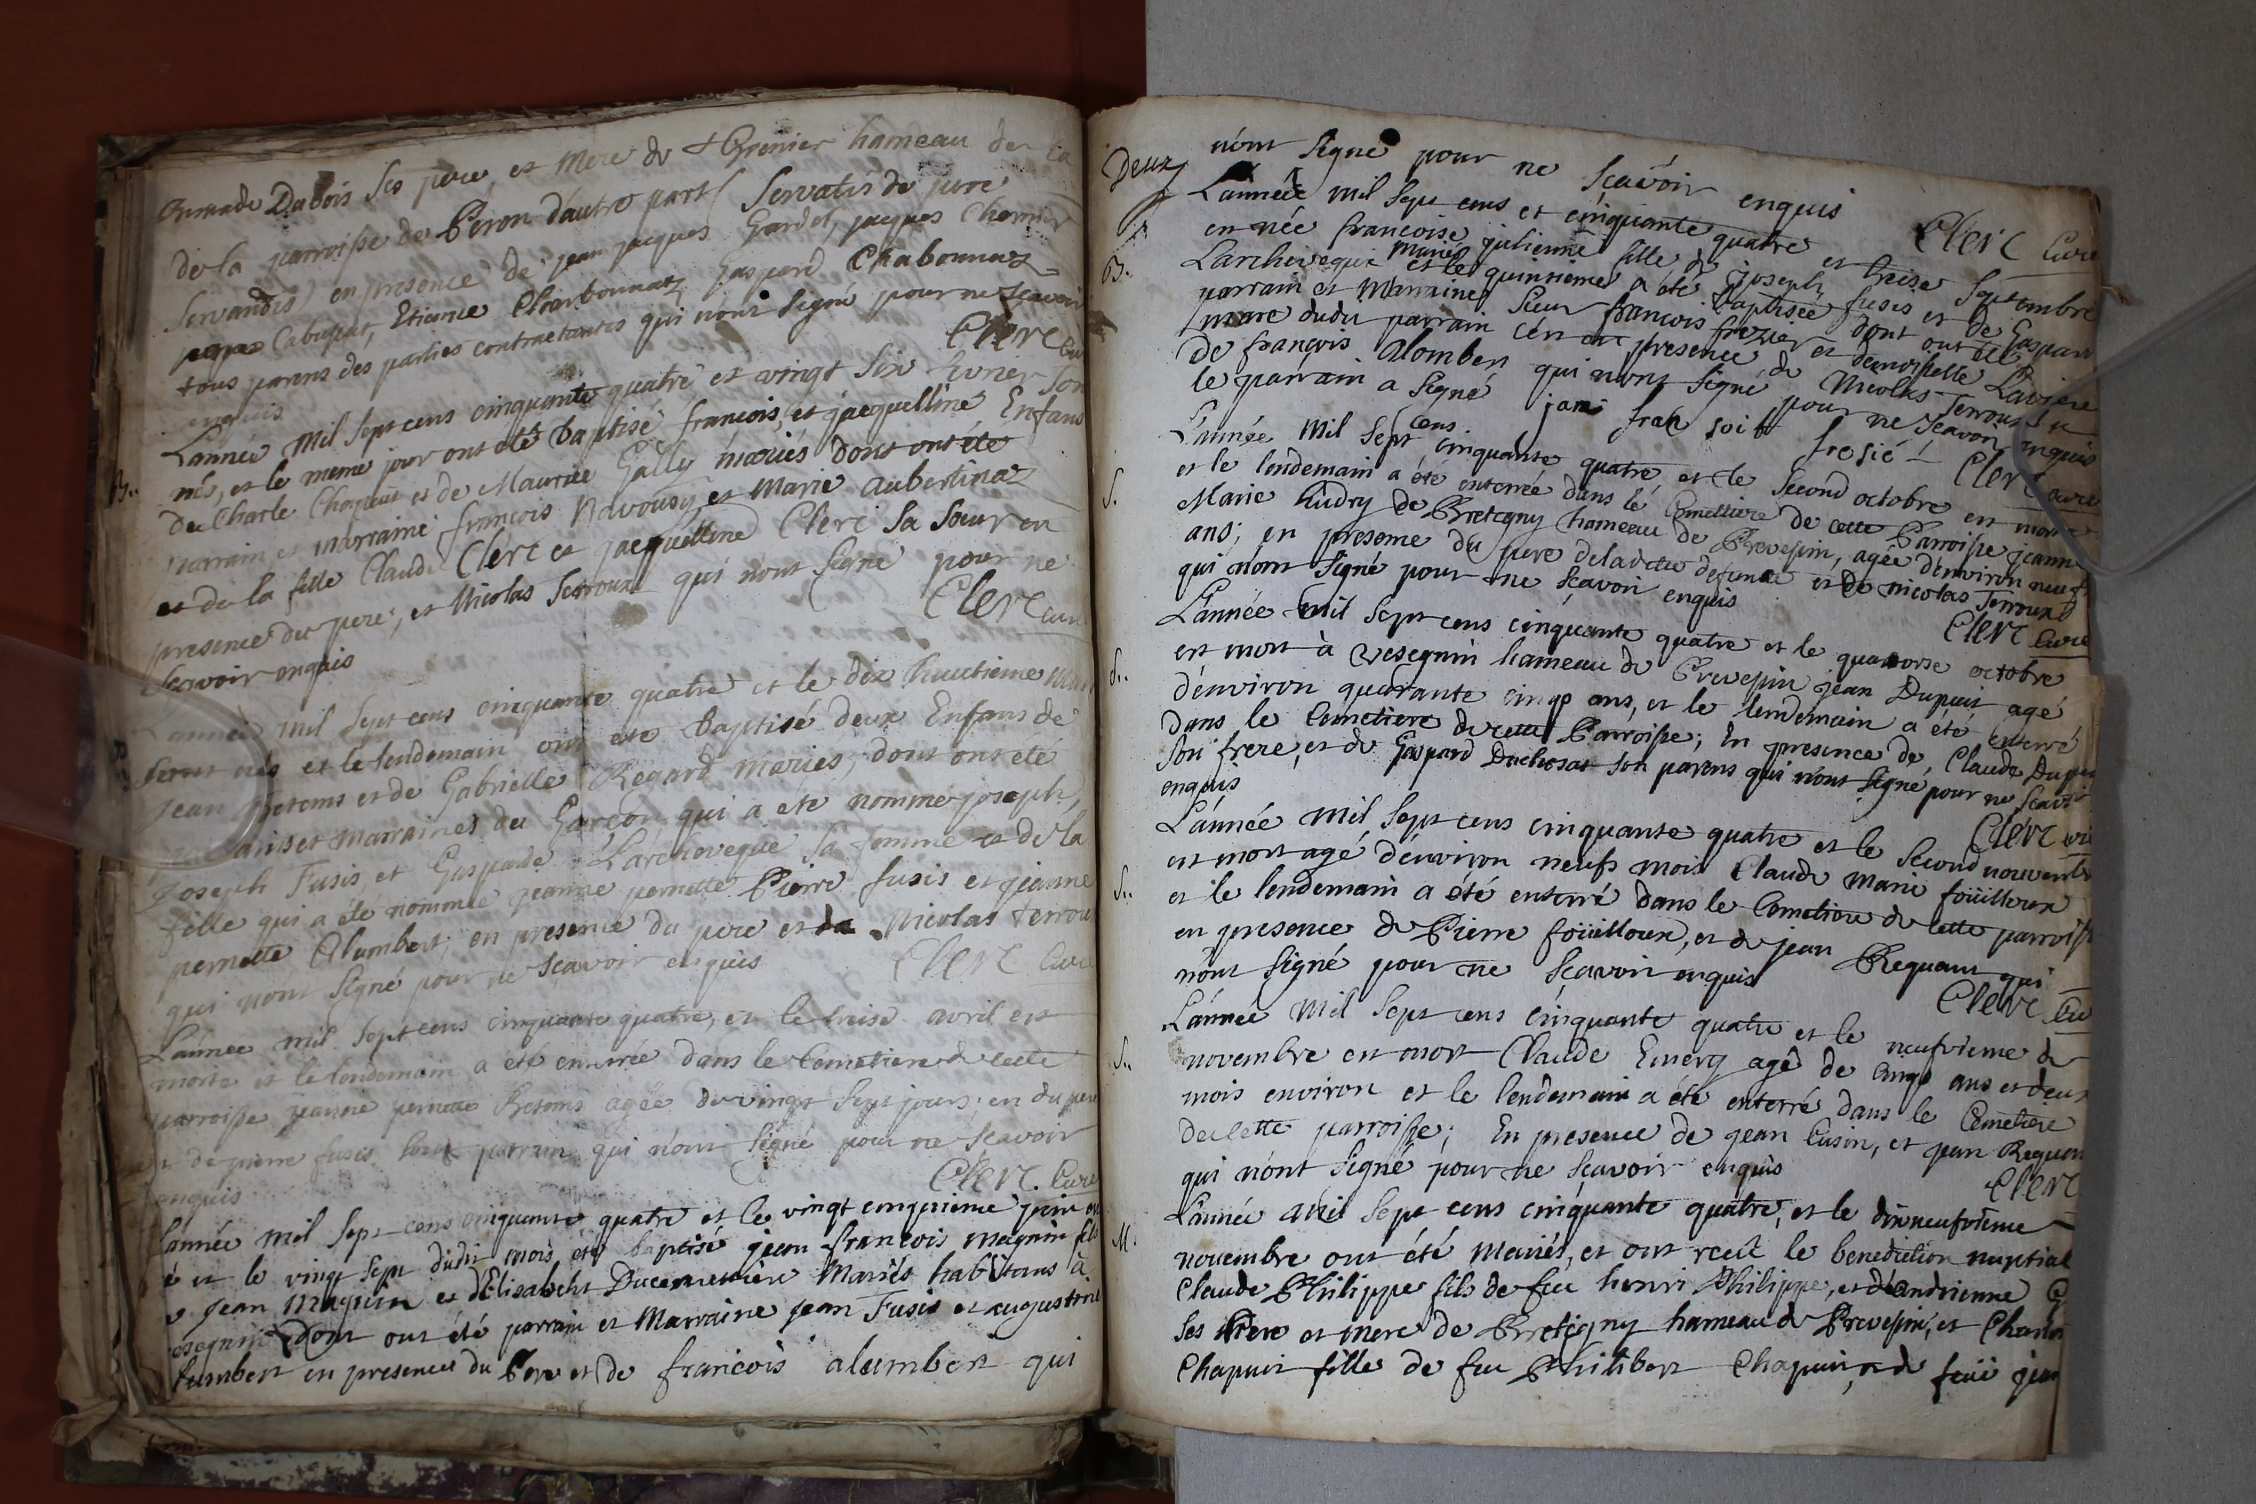 Dubois ses pere, et Mere de Grenier hameau de la
de la parroisse de Peron d'autre part servatis de jure
servandis) en presence de jean jacques Gardel, jacques
Cabussat, Etienne Charbonnat, Gaspard Chabonnaz
tous parens des parties contractantes qui n'ont signé pour ne scavoir
enquis Clerc cur
L'année Mil sept cens cinquante quatre et vingt six fevrier sont
nés, et le meme jour ont eté baptisé francois, et jacquelline Enfans
de Charle Chapuis et de Mauriee Gally mariés dont ont ete
parrain et marraine francois et Marie aubertinaz
et de la fille Claude Clerc et jacquelline Clerc sa soeur en
presence du pere, et Nicolas Terroux qui n'ont signé pour ne
scavoir enquis Clerc curé
L'année mil sept cens cinquante quatre et le dix huitieme Mars
sont nés et le lendemain ont eté Baptisé deux Enfans de
jean Betems et de Gabrielle Regard Mariés, dont ont ete
et marraines du Garcon qui a ete nommé joseph,
Joseph Fusis, et Gasparde Larcheveque sa femme et de la
fille qui a été nommée jeanne pernette Pierre fusis et jeanne
pernette Alumbert, en presence du pere et de Nicolas terroux
qui n'ont signé pour ne scavoir enquis Clerc Curé
L'année mil sept cens cinquante quatre, et le treise avril est
morte et le lendemain a eté enterrée dans le Cemetiere de cette
parroisse jeanne pernette Betems agée de vingt sept jours; en du pere
et de pierre fusis son parrain qui n'ont signé pour ne scavoir
enquis Clerc. Curé
L'année mil sept cens cinquante quatre et le vingt cinquieme juin
é et le vingt sept dudit mois été baptisé jean francois magnin fils
jean Magnin et d'Elisabeth Ducemetiere Mariés habitans à
dont ont été parrain et Marraine jean Fusis et augustine
lumbert en presence du Pere et de francois alumbert qui
Deux
n'ont signé pour ne scavoir enquis Clerc Curé
L'année mil sept cens et cinquante quatre et treise septembre
B. en née francoise julienne fille de joseph fusis et de Gaspard
Larcheveque Mariés et le quinsieme a été Baptisée dont ont été
parrain et Marraine sieur francois frezier et demoiselle
mare dudit parrain en presence de Nicolas Terroux
de françois Alombert qui n'ont signé pour ne scavoir enquis
le parrain a signé jani fran soi fresié Clerc curé
S. L'année Mil sept cens cinquante quatre, et le second octobre est morte
et le lendemain a été enterrée dans le Cemettiere de cette Parroisse jeanne
Marie Audry de Bretegny hameau de Prevessin, agée denviron neuf
ans; en presence du pere de laditte defunte et de nicolas Terroux
qui n'ont signé pour ne scavoir enquis Clerc Curé
S. L'année mil sept cens cinquante quatre et le quatorse octobre
est mort à Vesegnin hameau de Prevessin jean Dupuit agé
d'environ quarante cinq ans, et le lendemain a été enterré
dans le Cemetiere de cette Parroisse; En presence de, Claude Dupuit
son frere, et de Gaspard Duchosat son parens qui n'ont signé pour ne scavoir
enquis Clerc
S. L'année mil sept cens cinquante quatre et le second novembre
est mort agé d'environ neufs mois Claude Marie foüilloux
et le lendemain a été enterré dans le Cemetiere de cette parroisse
en presence de Pierre foüilloux, et de jean Requant qui
n'ont signé pour ne scavoir enquis Clerc Cu
S. L'année Mil sept cens cinquante quatre et le neufvieme de
novembre est mort Claude Emery agé de cinq ans et deux
mois environ et le lendemain a été enterré dans le Cemetiere
de cette parroisse; En presence de jean Cusin, et jean Requan
qui n'ont signé pour ne scavoir enquis Clerc
M. L'année mil sept cens cinquante quatre, et le dixneufvieme
novembre ont été mariés, et ont recu le benediction nuptial
Claude Philippe fils de feu henri Philippe, et d'andrienne
ses Pere et mere de Bretigny hameau de Prevessin, et
Chapuit fille de feu Philibert Chapuit, et de feüe jean